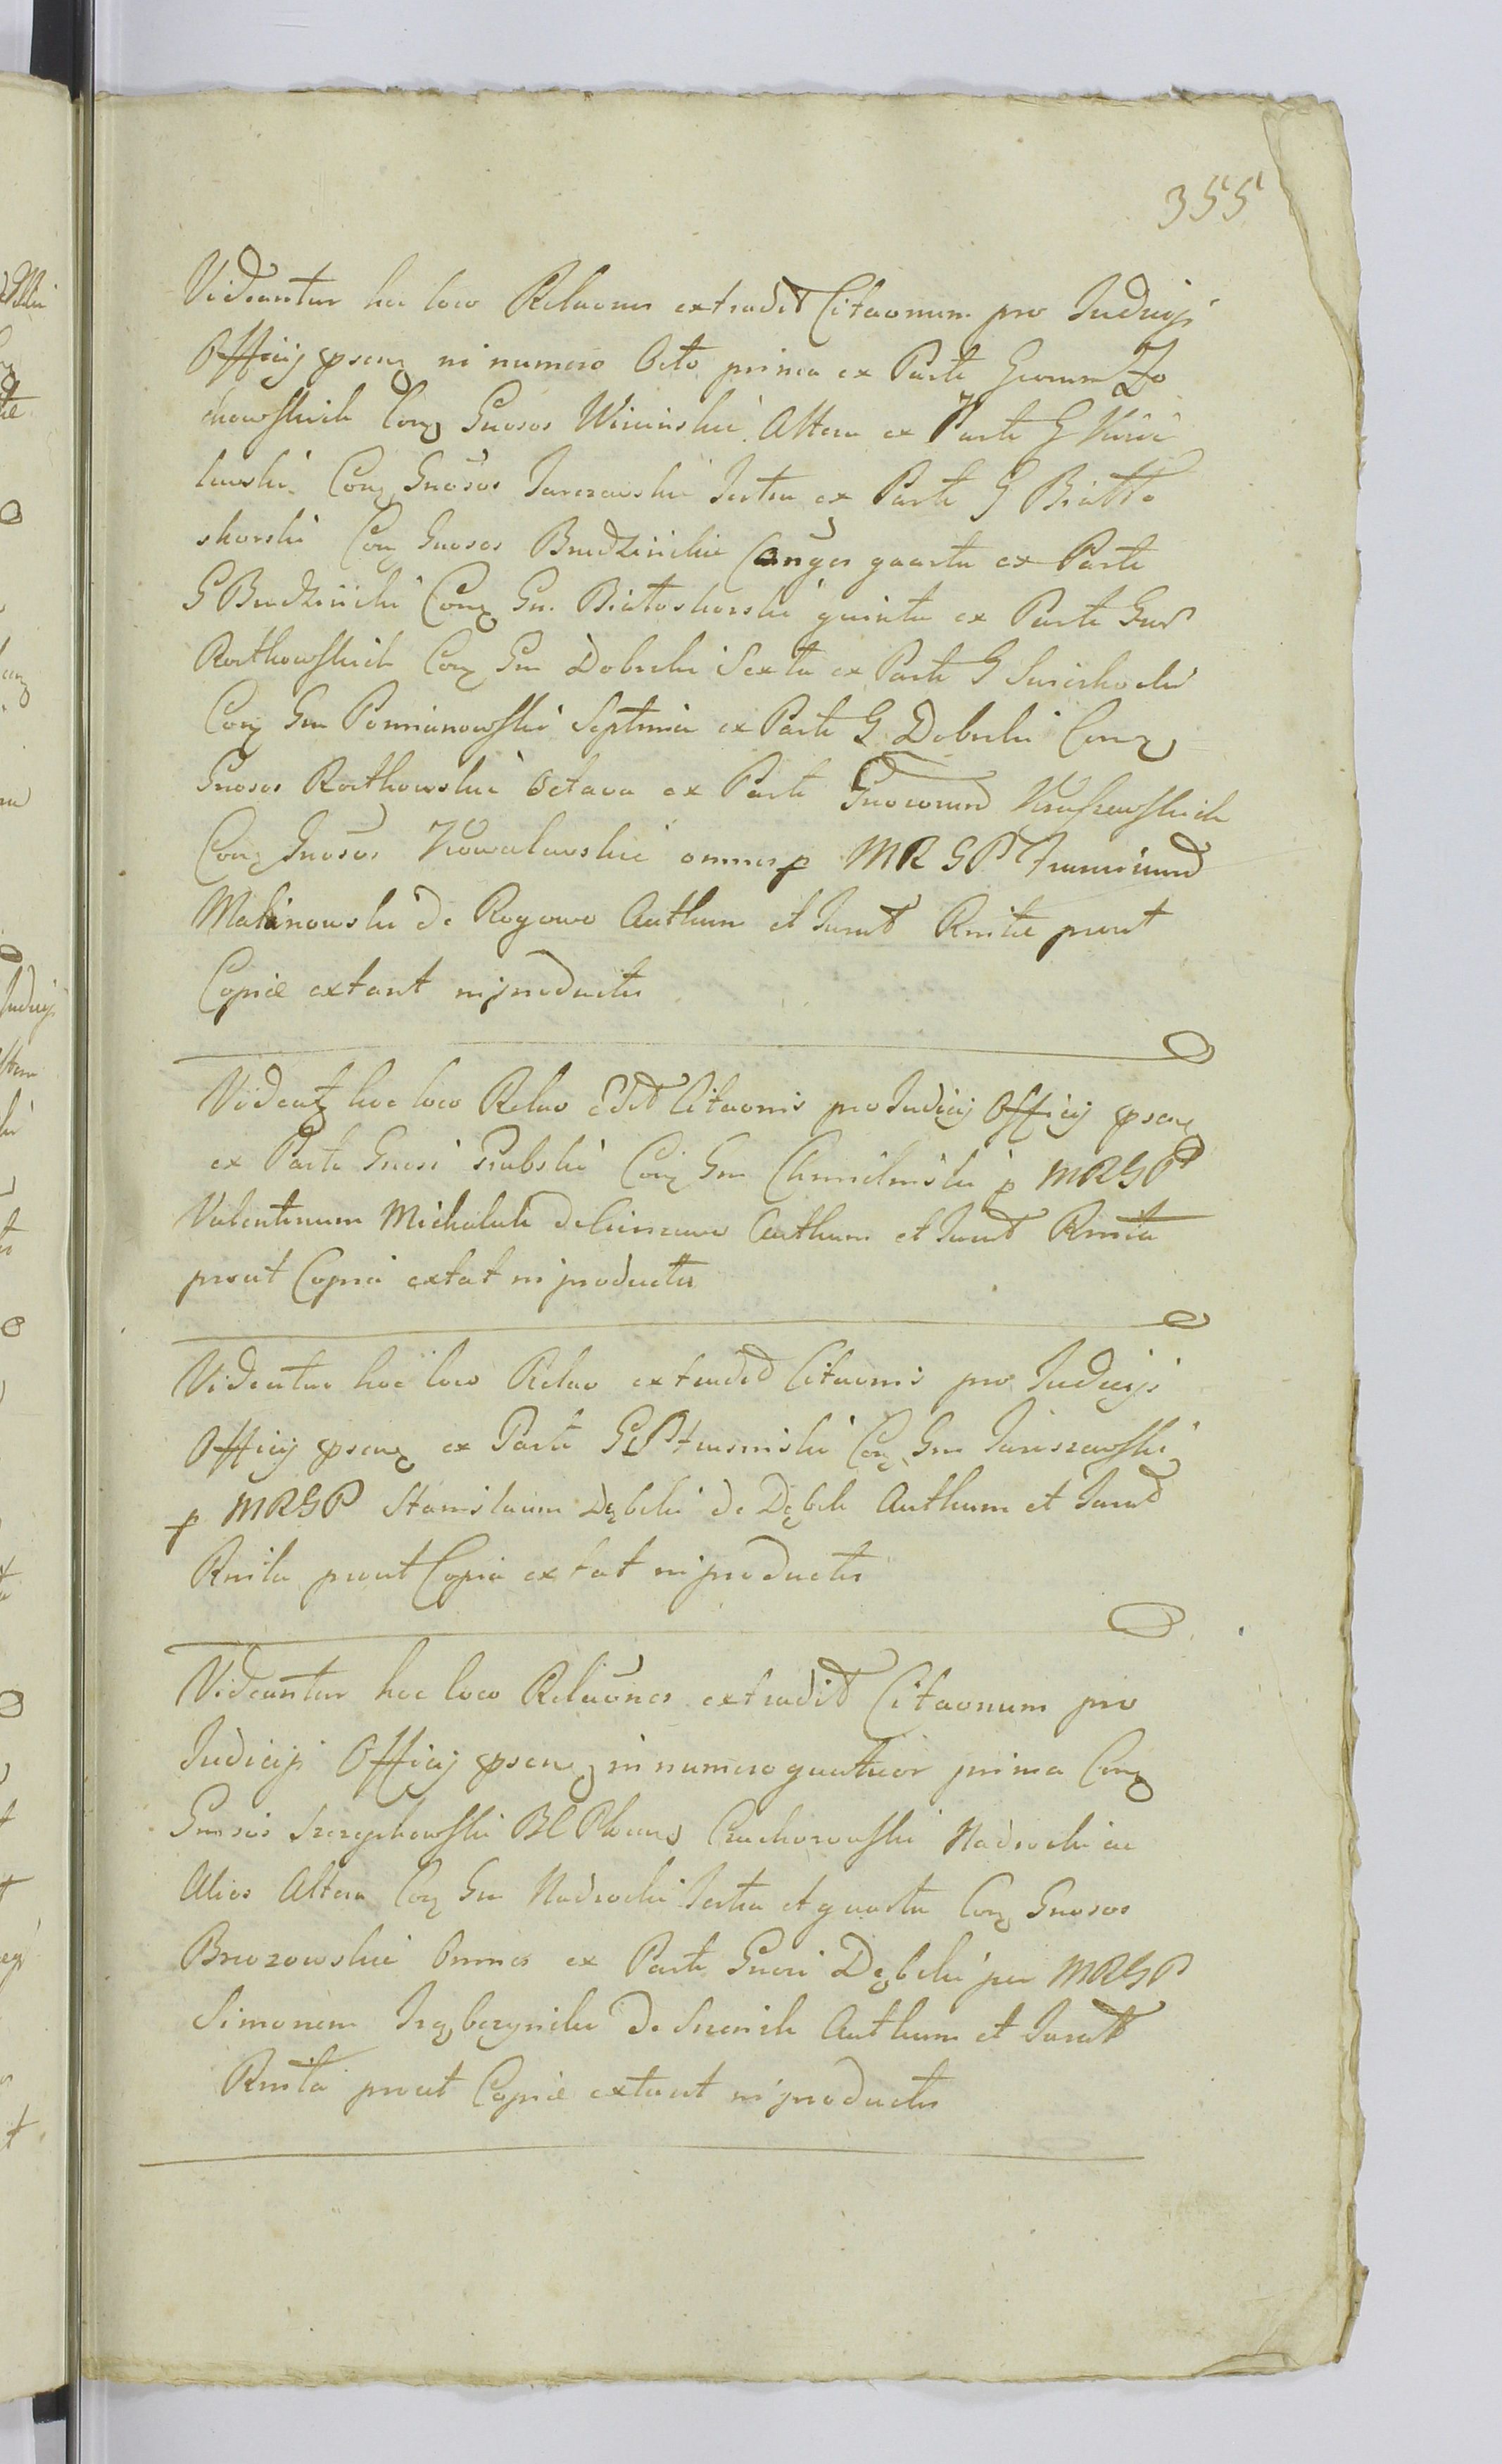 355
Videantur hoc loco Relaones extradit Citaonum pro Judicijs
Officij pseng in numero Octo prima ex Parte Gnorum Zo
chowskich Cong Gnosos Wininskie Altera ex Parte G
lewski Cong Gnosos Jarczewskie Tertia ex Parte G Biało
skorski Cong Gnosos Budzinskie Conges quarta ex Parte
G Budzinski Cong Gn. Białoskorski quinta ex Parte Gnor
Rostkowskich Cong Gn Dobrski Sexta ex Parte G
Cong Gn Pomianowski Septima ex Parte G Dobrski Cong
Gnosos Rostkowskie Octava ex Parte Gnosorum Kraszewskich
Cong Gnosos Kowalewskie omnes p MRGP Franciscum
Malinowski de Rogowo Authum et Jurat Rnitae prout
Copiae extant in productis
Videatg hoc loco Relao Edit Citaonis pro Judicijs Officij pseng
ex Parte Gnosi Grabski Cong Gn Chmielinski p MRGP
Valentinum Michalak de Authum et Jurat Rnita
prout Copia extat in productis
Videatur hoc loco Relao extradit Citaonis pro Judicijs
Officij pseng ex Parte G Cong Gn Jaroszewski
p MRGP Stanislaum Dębski de Dębsk Authum et Jurat
Rnita prout Copia extat in productis
Videantur hoc loco Relaones extradit Citaonum pro
Judicijs Officij pseng in numero quatuor prima Cong
Gnosos Szczypkowski Czachorowski Nadrocki ac
Alios Altera Cong Gn Nadrocki Tertia et quarta Cong Gnosos
Brzozowskie Omnes ex Parte Gnosi Dębski per MRGP
Simonem de Authum et Jurat
Rnita prout Copiae extant in productis